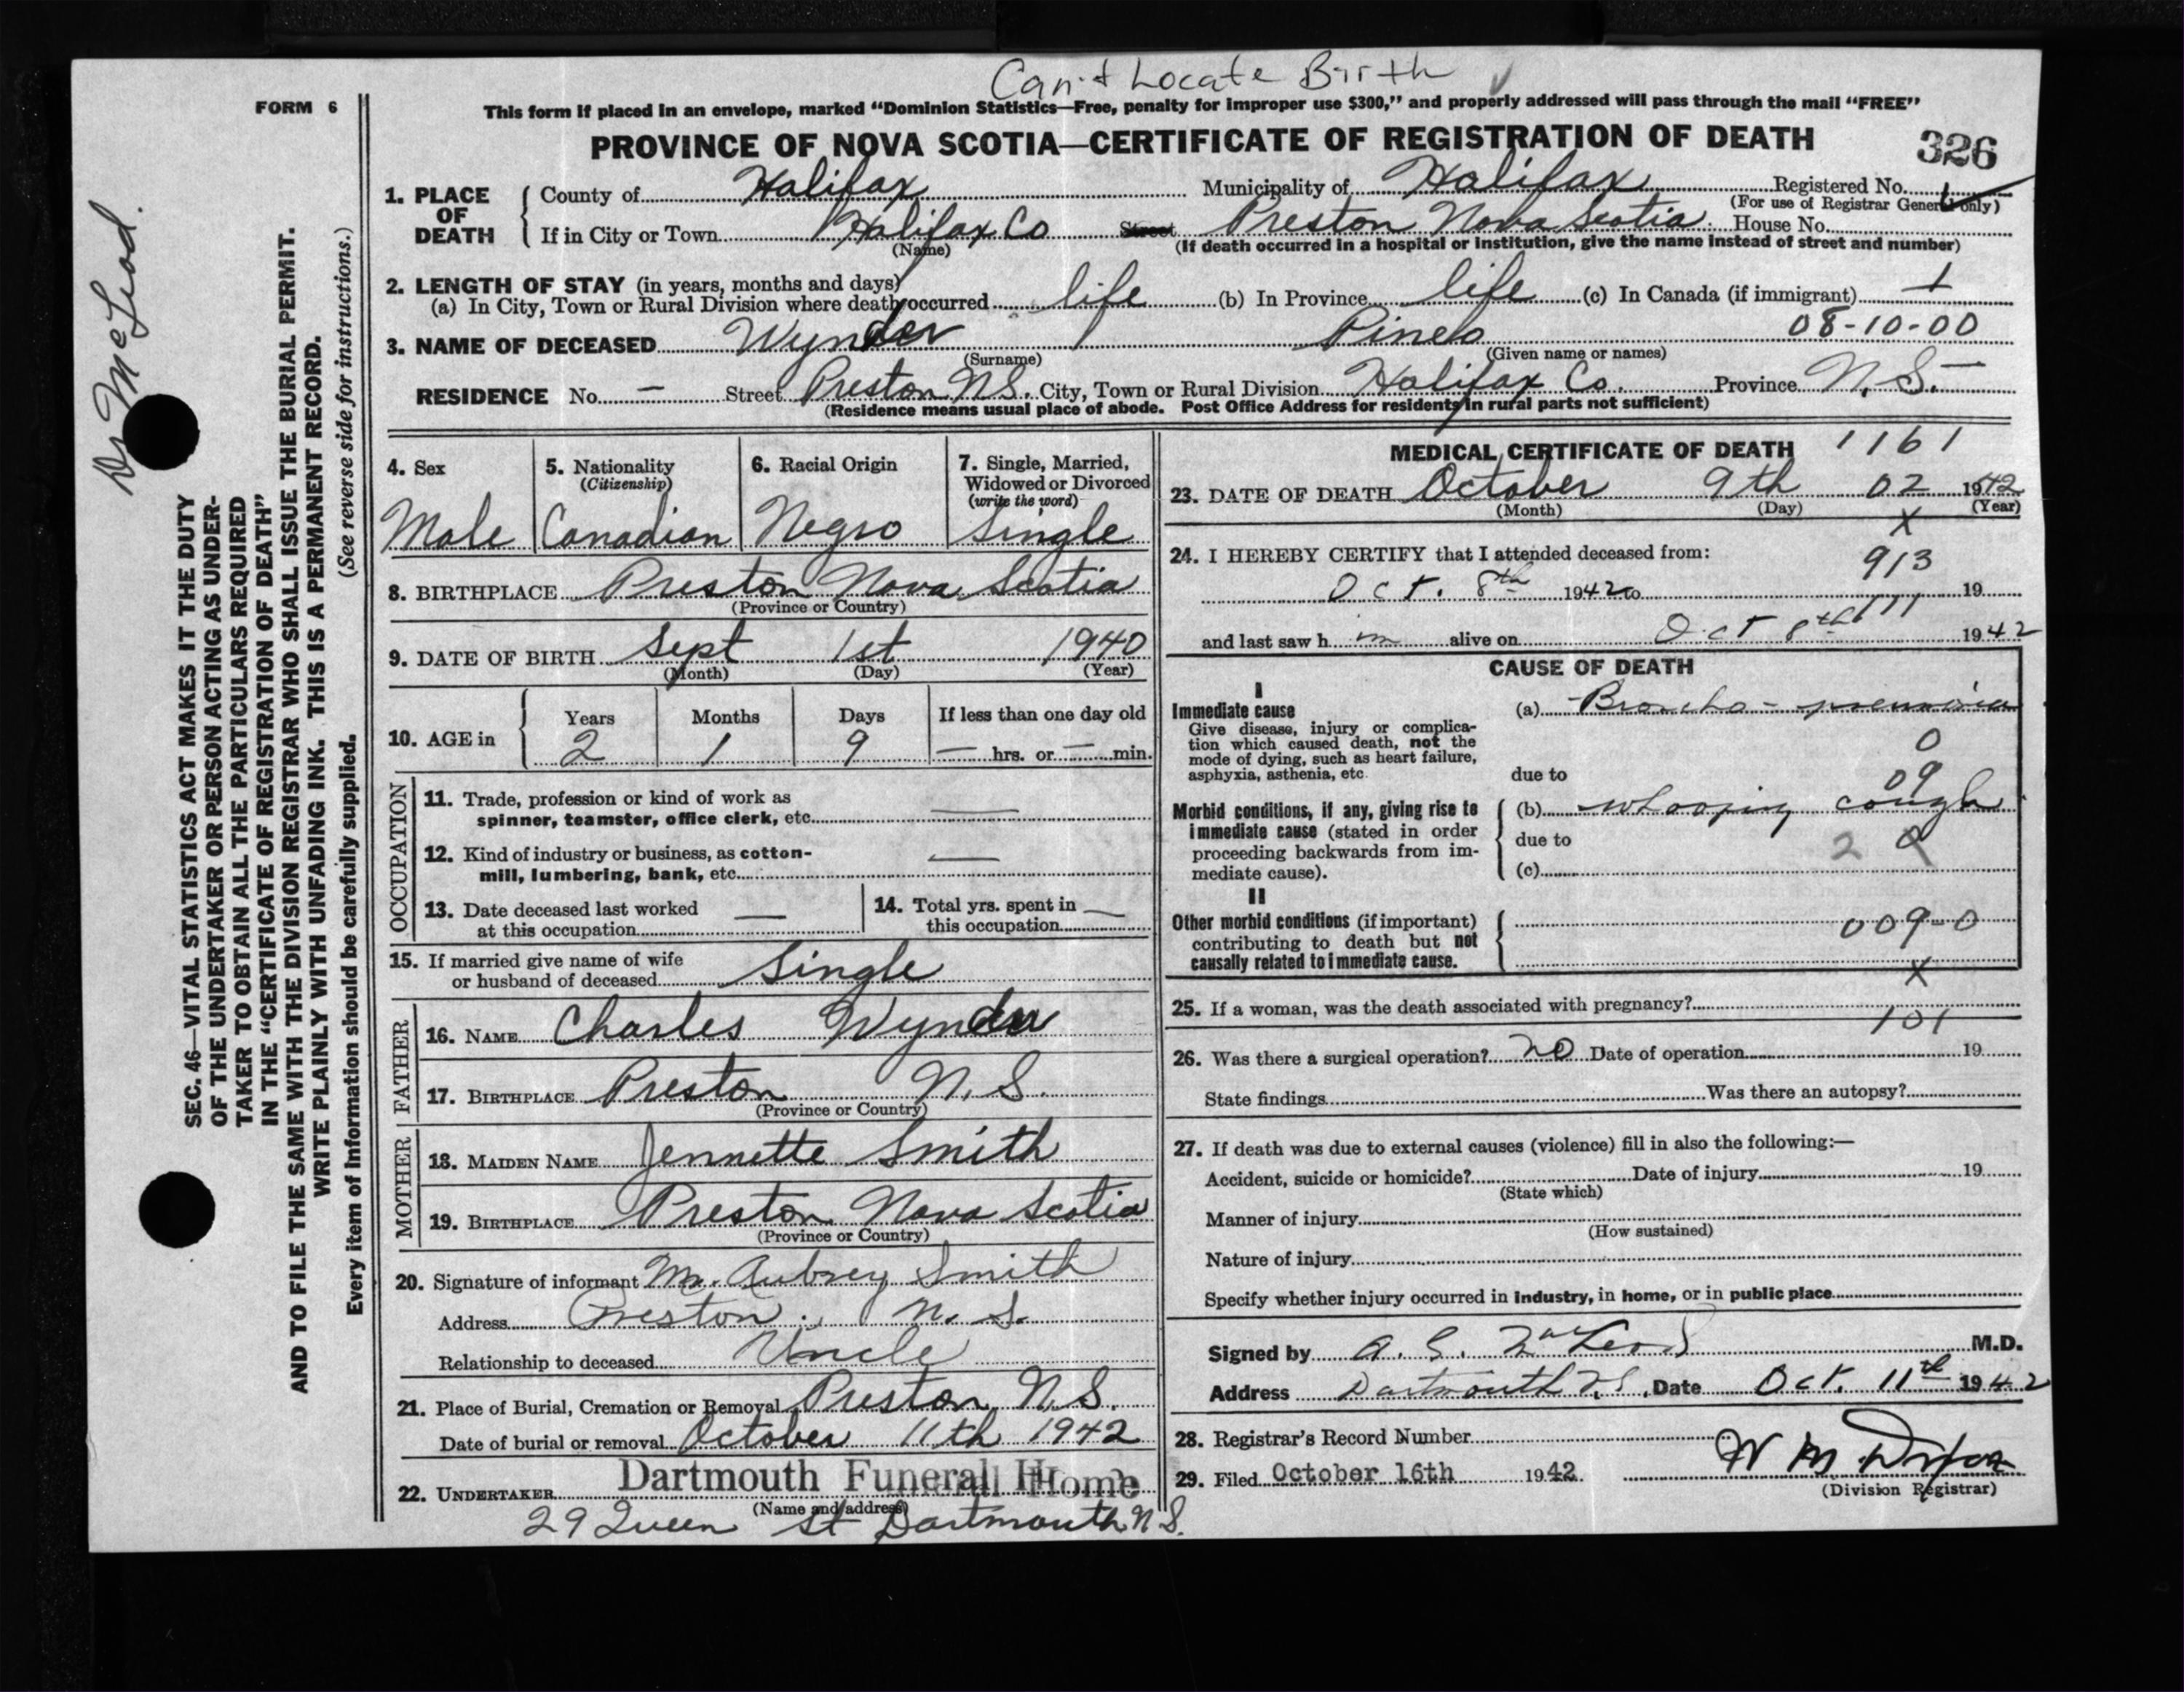 Can't Locate Birth
FORM 6
This form if placed in an envelope, marked “Dominion Statistics—Free, penalty for improper use $300,” and properly addressed will pass through the mail “FREE”
PROVINCE OF NOVA SCOTIA—CERTIFICATE OF REGISTRATION OF DEATH
326
1. PLACE OF DEATH
County of Halifax Municipality of Halifax Registered No.
(For use of Registrar General only)
If in City or Town Halifax Co Street Preston Nova Scotia House No.
(Name) (If death occurred in a hospital or institution, give the name instead of street and number)
2. LENGTH OF STAY (in years, months and days)
(a) In City, Town or Rural Division where death occurred life (b) In Province life (c) In Canada (if immigrant)
08-10-00
3. NAME OF DECEASED Wynder Pineo
(Surname) (Given name or names)
RESIDENCE No. — Street Preston N.S. City, Town or Rural Division Halifax Co. Province N.S.
(Residence means usual place of abode. Post Office Address for residents in rural parts not sufficient)
4. Sex
Male
5. Nationality
(Citizenship)
Canadian
6. Racial Origin
Negro
7. Single, Married, Widowed or Divorced
(write the word)
Single
8. BIRTHPLACE Preston Nova Scotia
(Province or Country)
9. DATE OF BIRTH Sept 1st 1940
(Month) (Day) (Year)
10. AGE in
Years Months Days If less than one day old
2 1 9 — hrs. or — min.
OCCUPATION
11. Trade, profession or kind of work as
spinner, teamster, office clerk, etc. —
12. Kind of industry or business, as cotton-
mill, lumbering, bank, etc. —
13. Date deceased last worked
at this occupation —
14. Total yrs. spent in
this occupation —
15. If married give name of wife
or husband of deceased Single
FATHER
16. NAME Charles Wynder
17. BIRTHPLACE Preston N.S.
(Province or Country)
MOTHER
18. MAIDEN NAME Jennette Smith
19. BIRTHPLACE Preston Nova Scotia
(Province or Country)
20. Signature of informant Mr. Aubrey Smith
Address Preston, N.S.
Relationship to deceased Uncle
21. Place of Burial, Cremation or Removal Preston N.S.
Date of burial or removal October 11th 1942
22. UNDERTAKER Dartmouth Funeral Home
(Name and address)
29 Queen St Dartmouth N.S.
MEDICAL CERTIFICATE OF DEATH 1161
23. DATE OF DEATH October 9th 02 1942
(Month) (Day) (Year)
X
24. I HEREBY CERTIFY that I attended deceased from:
913
Oct. 8th 1942 to 19
111
and last saw him alive on Oct 8th 1942
CAUSE OF DEATH
I
Immediate cause
Give disease, injury or complica-
tion which caused death, not the
mode of dying, such as heart failure,
asphyxia, asthenia, etc.
(a) Broncho-pneumonia
0
due to
09
Morbid conditions, if any, giving rise to
immediate cause (stated in order
proceeding backwards from im-
mediate cause).
(b) whooping cough
due to
2
(c)
II
Other morbid conditions (if important)
contributing to death but not
causally related to immediate cause.
009-0
X
25. If a woman, was the death associated with pregnancy?
101
26. Was there a surgical operation? no Date of operation 19
State findings Was there an autopsy?
27. If death was due to external causes (violence) fill in also the following:—
Accident, suicide or homicide? Date of injury 19
(State which)
Manner of injury
(How sustained)
Nature of injury
Specify whether injury occurred in industry, in home, or in public place
Signed by A. G. MacLeod M.D.
Address Dartmouth N.S. Date Oct. 11th 1942
28. Registrar's Record Number
29. Filed October 16th 1942
(Division Registrar)
Dr McLeod.
SEC. 46—VITAL STATISTICS ACT MAKES IT THE DUTY
OF THE UNDERTAKER OR PERSON ACTING AS UNDER-
TAKER TO OBTAIN ALL THE PARTICULARS REQUIRED
IN THE “CERTIFICATE OF REGISTRATION OF DEATH”
AND TO FILE THE SAME WITH THE DIVISION REGISTRAR WHO SHALL ISSUE THE BURIAL PERMIT.
WRITE PLAINLY WITH UNFADING INK. THIS IS A PERMANENT RECORD.
Every item of information should be carefully supplied. (See reverse side for instructions.)